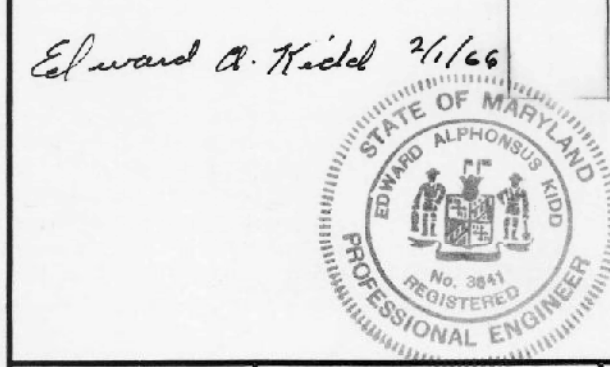 Edward A. Kidd 2/1/66
STATE OF MARYLAND
EDWARD ALPHONSUS KIDD
No. 3841
REGISTERED
PROFESSIONAL ENGINEER